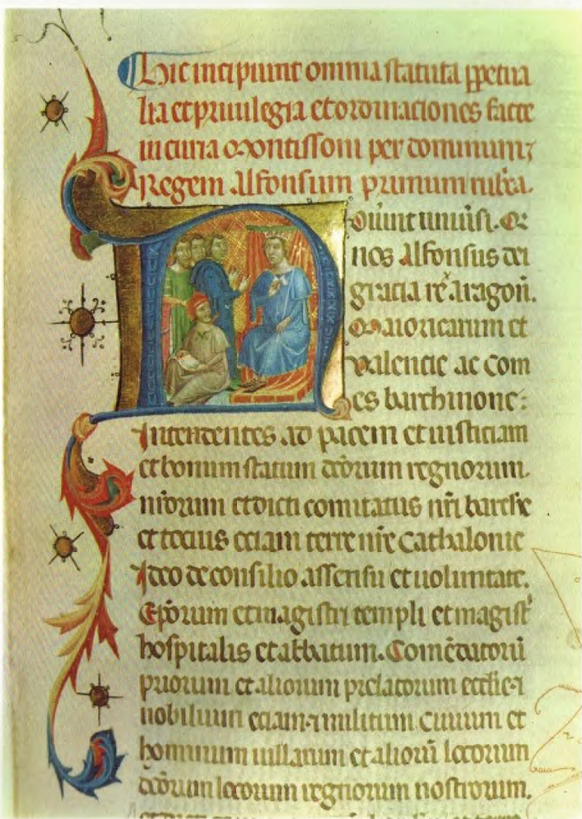 Hic incipiunt omnia statuta ppetua
lia et priuilegia et ordinaciones facte
in curia Montissoni per dominum
Regem Alfonsum primum rubea.
Nouint uniuersi. Qr
nos Alfonsus dei
gracia rex aragon.
Maioricarum et
Valencie ac com
es barchinone:
Intendentes ad pacem et iusticiam
et bonum statum dcorum regnorum.
nrorum et dicti comitatus nri barchie
et tocius eciam terre nre Cathalonie
Ideo de consilio assensu et uoluntate.
Eporum et magistri templi et magistri
hospitalis et abbatum. Comendatoru
priorum et aliorum prelatorum ecclie.
nobilium eciam militum Ciuium et
hominum uillarum et alioru locorum
dcorum locorum regnorum nostrorum.